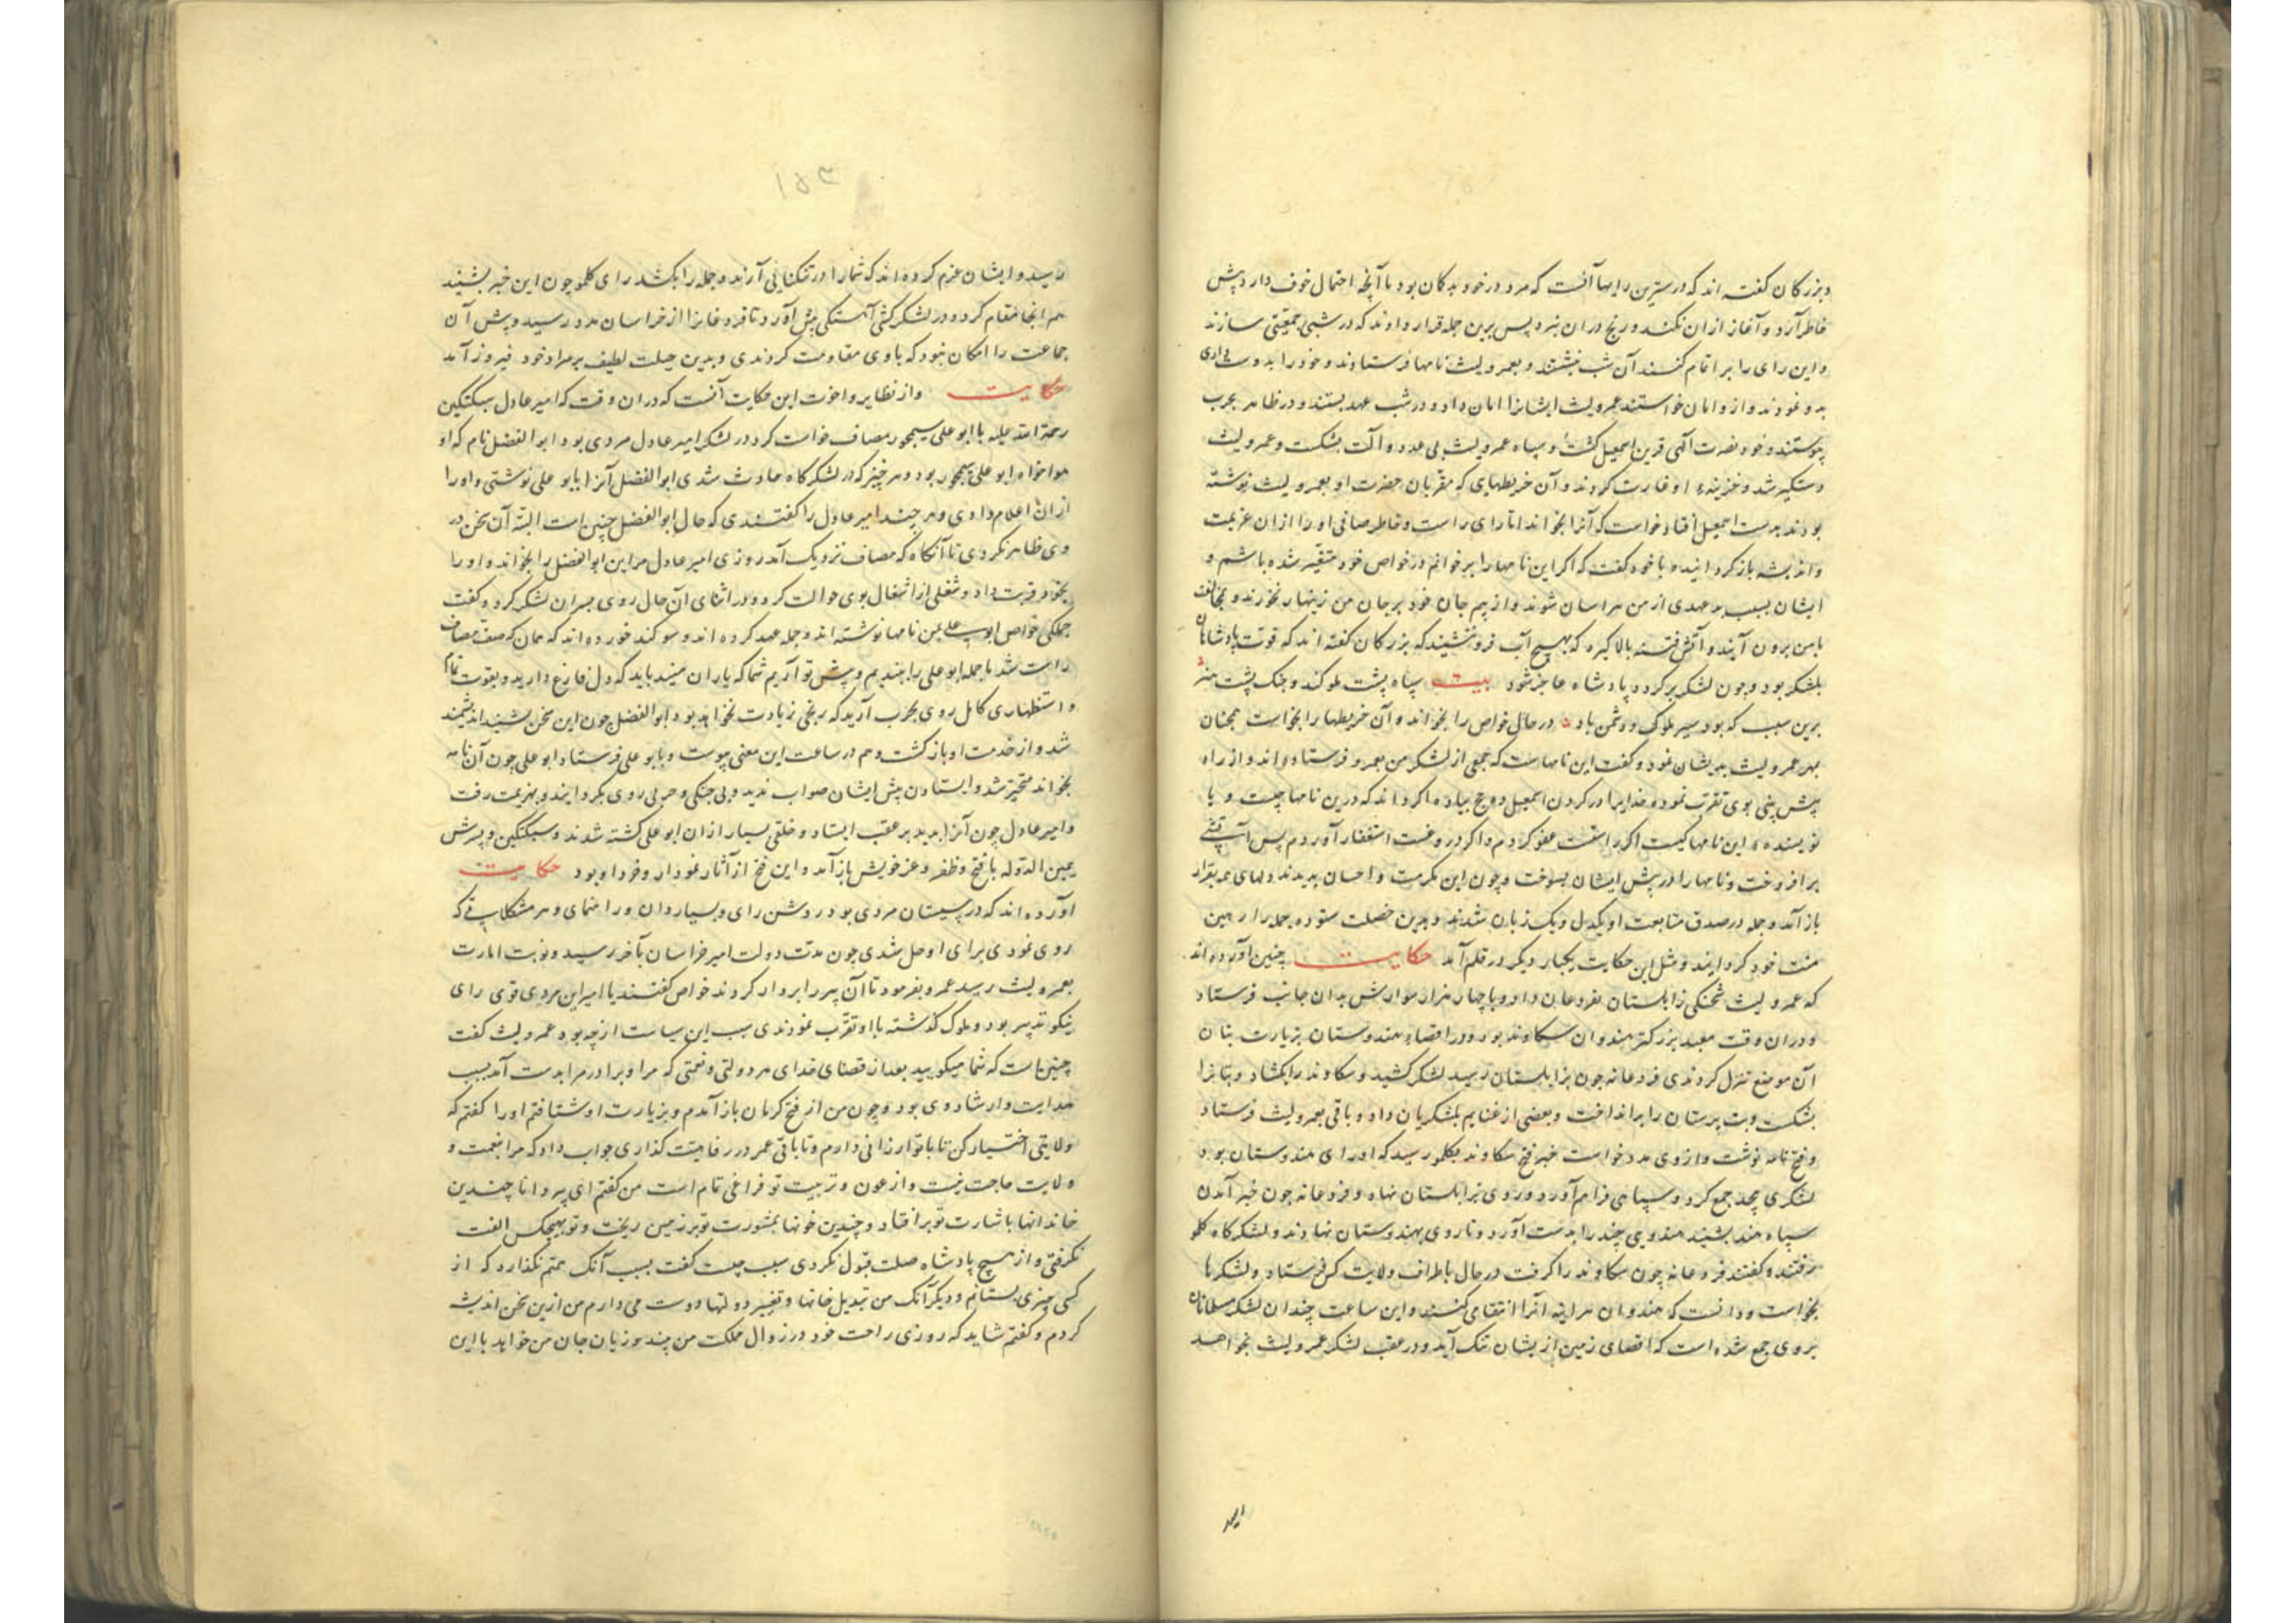 و بزرکان کفته اند که درسترین رایها آنست که مرد در خود بد کان بود تا آنچه احتمال خوف دارد پیش
خاطر آرد و آغاز ازان نکند و رنج دران نبرد پس برین جمله قرار دادند که در شبی جمعیتی سازند
و این رای را بر اتمام کنند آن شب بنشستند و بعمرو لیث نامها فرستادند و خود را بدوستداری
بدو نمودند و از و امان خواستند عمرو لیث ایشانرا امان داد و در شب عهد بستند و در ظاهر بحرب
پیوستند و خود نصرت الهی قرین اسمعیل کشت و سپاه عمرو لیث بی عدد و آلت بشکست و عمرو لیث
دستکیر شد و خزینه او غارت کردند و آن خریطهایی که مقربان حضرت او بعمرو لیث نوشته
بودند بدست اسمعیل افتاد خواست که آنرا بخواند اما رای راست و خاطر صافی او را ازان عزیمت
و اندیشه باز کردانید و با خود کفت که اکر این نامها را برخوانم در خواص خود متغیر شده باشم و
ایشان بسبب بد عهدی از من هراسان شوند و از بیم جان خود بر جان من زینهار نخورند و بمخالفت
با من برون آیند و آتش فتنه بالا کیرد که بهیچ آب فرو ننشیند که بزرکان کفته اند که قوت پادشاهان
بلشکر بود و چون لشکر برکردد پادشاه عاجز شود بیت سپاه پشت ملو کند و جنک پشت هنر
برین سبب که بود سیر ملوک و دشمن باد در حال خواص را بخواند و آن خریطها را بخواست همچنان
بمهر عمرو لیث بدیشان نمود و کفت این نامهاست که جمعی از لشکر من بعمرو فرستاده اند و از راه
پیش بینی بوی تقرب نموده خدایرا در کردن اسمعیل ده حج پیاده اکر داند که درین نامها چیست و یا
نویسنده این نامها کیست اکر راستست عفو کردم و اکر دروغست استغفار آوردم پس آتشی
بر افروخت و نامها را در پیش ایشان بسوخت و چون این مکرمت و احسان بدیدند دلهای همه بقرار
باز آمد و جمله در صدق متابعت او یکدل و یک زبان شدند و بدین خصلت ستوده جمله را رهین
منت خود کردانید و مثل این حکایت یکبار دیکر در قلم آمد حکایت چنین آورده اند
که عمرو لیث شحنکی زابلستان بفردغان داد و با چهار هزار سوارش بدان جانب فرستاد
و دران وقت معبد بزرکتر هندوان سکاوند بود و در اقصاء هندوستان بزیارت بتان
آن موضع تنزل کردندی فردغانه چون بزابلستان رسید لشکر کشید و سکاوند را بکشاد و بتانرا
بشکست و بت پرستان را بر انداخت و بعضی از غنایم بلشکریان داد و باقی بعمرو لیث فرستاد
و فتح نامه نوشت و از وی مدد خواست خبر فتح سکاوند بکلمو رسید که او رای هندوستان بود
لشکری بیحد جمع کرد و سپاهی فراهم آورد و روی بزابلستان نهاد و فردغانه چون خبر آمدن
سپاه هند بشنید هندویی چند را بدست آورد و تا روی بهندوستان نهادند و لشکرکاه کلمو
رفتند و کفتند فردغانه چون سکاوند را کرفت در حال باطراف ولایت کس فرستاد و لشکرها
بخواست و دانست که هندوان هر اینه آنرا انتقامی کنند و این ساعت چندان لشکر مسلمانان
بر وی جمع شده است که اقصای زمین از یشان تنک آید و در عقب لشکر عمرو لیث بخواهد
رسید و ایشان عزم کرده اند که شمارا در تنکنایی آرند و جمله را بکشد رای کلمو چون این خبر بشنید
هم انجا مقام کرد و در لشکر کشی آهستکی پیش آورد تا فردغانرا از خراسان مدد رسید و پیش آن
جماعت را امکان نبود که با وی مقاومت کردندی و بدین حیلت لطیف بر مراد خود فیروز آمد
حکایت و از نظایر و اخوت این حکایت آنست که دران وقت که امیر عادل سبکتکین
رحمة الله علیه با ابو علی سیمجور مصاف خواست کرد در لشکر امیر عادل مردی بود ابو الفضل نام که او
هواخواه ابو علی سیمجور بود و هر چیز که در لشکر کاه حادث شدی ابو الفضل آنرا بابو علی نوشتی و او را
ازان اعلام دادی و هر چند امیر عادل را کفتندی که حال ابو الفضل چنین است البته آن سخن در
وی ظاهر نکردی تا آنکاه که مصاف نزدیک آمد روزی امیر عادل مر این ابو الفضل را بخواند و او را
بخود قربت داد و شغلی از اشغال بوی حوالت کرد و در اثنای آن حال روی بسران لشکر کرد و کفت
جملکی خواص ابو علی بمن نامها نوشته اند و جمله عهد کرده اند و سو کند خورده اند که همان که صف مصاف
راست شد ما جمله ابو علی را ببندیم و پیش تو آریم شما که یاران منید باید که دل فارغ دارید و بقوت تمام
و استظهاری کامل روی بحرب آرید که رنجی زیادت نخواهد بود ابو الفضل چون این سخن بشنید اندیشمند
شد و از خدمت او باز کشت و هم در ساعت این معنی بنوشت و بابو علی فرستاد ابو علی چون آن نامه
بخواند متحیر شد و ایستادن پیش ایشان صواب ندید و بی جنکی و حربی روی بکردانید و بهزیمت رفت
و امیر عادل چون آنرا بدید بر عقب ایستاد و خلقی بسیار ازان ابو علی کشته شدند و سبکتکین و پسرش
یمین الدوله با فتح و ظفر و عز خویش باز آمد و این فتح از آثار نمودار و خرد او بود حکایت
آورده اند که در سیستان مردی بود روشن رای و بسیار دان و راهنمای و هر مشکلاتی که
روی نمودی برای او حل شدی چون مدت دولت امیر خراسان بآخر رسید و نوبت امارت
بعمرو لیث رسید عمرو بفرمود تا آن پیر را بر دار کردند خواص کفتند یا امیر این مردی قوی رای
نیکو تدبیر بود و ملوک کذشته با او تقرب نمودندی سبب این سیاست از چه بود عمرو لیث کفت
چنین است که شما میکویید بعد از قضای خدای هر دولتی و نعمتی که مرا و برادر مرا بدست آمد بسبب
هدایت و ارشاد وی بود و چون من از فتح کرمان باز آمدم و بزیارت او شتافتم او را کفتم که
ولایتی اختیار کن تا با تو ارزانی دارم و تا باقی عمر در رفاهیت کذاری جواب داد که مرا بنعمت و
ولایت حاجت نیست و از عون و تربیت تو فراغی تمام است من کفتم ای پیر دانا چندین
خاندانها باشارت تو بر افتاد و چندین خونها بمشورت تو بر زمین ریخت و تو بهیچکس الفت
نکرفتی و از هیچ پادشاه صلت قبول نکردی سبب چیست کفت بسبب آنک همتم نکذارد که از
کسی چیزی بستانم و دیکر آنک من تبدیل خانها و تغییر دولتها دوست می دارم من ازین سخن اندیشه
کردم و کفتم شاید که روزی راحت خود در زوال مملکت من بیند و زیان جان من خواهد با این